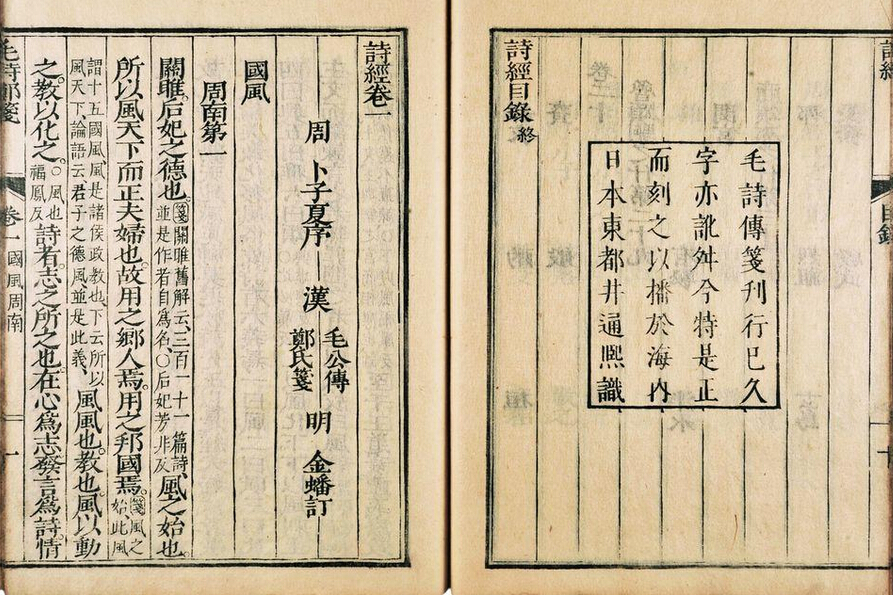 詩經
目錄
十
毛詩傳箋刊行已久
字亦訛舛今特是正
而刻之以播於海內
日本東都井通熙識
詩經目錄終
詩經卷一
周 卜子夏序 漢 毛公傳 鄭氏箋 明 金蟠訂
國風
周南第一
關雎后妃之德也箋關雎舊解云三百一十一篇詩並是作者自為名○后妃芳非反風之始也
所以風天下而正夫婦也故用之鄉人焉用之邦國焉箋風之始此風
謂十五國風風是諸侯政教也下云所以風天下論語云君子之德風並是此義風風也教也風以動
之教以化之○風也福鳳反詩者志之所之也在心為志發言為詩情
毛詩鄭箋
卷一
國風周南
一